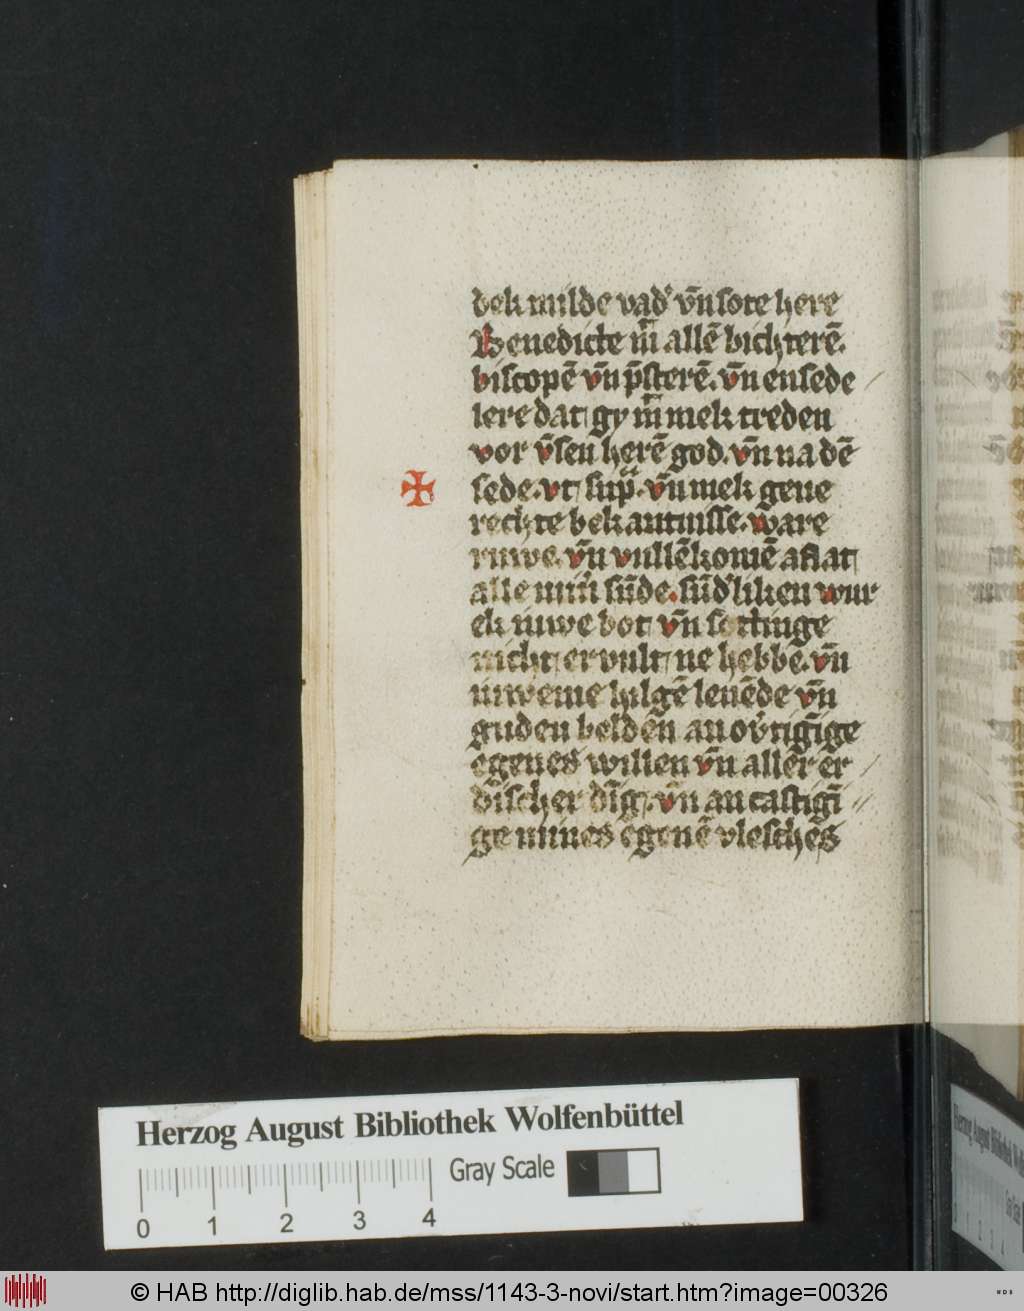 dek milde vad' vn̄ sote here
Benedicte m̄ allē bichterē.
biscopē vn̄ p̄sterē. vn̄ ensede
lere dat gy m̄ mek treden
vor v̄sen herē god. vn̄ na dē
sede. vt sup̄. vn̄ mek geue
rechte bekantnisse. ware
ruwe. vn̄ vullēkomē aflat
alle min̄ sūde. sūd'liken wur
ek iuwe bot vn̄ settinge
nicht ervult ne hebbe. vn̄
iuweme hilgē leuēde vn̄
guden beldēn an ov̄tigīge
egenes willen vn̄ aller er
discher dīg. vn̄ an castigī
ge mines egenē vlesches
Herzog August Bibliothek Wolfenbüttel
Gray Scale
0 1 2 3 4
© HAB http://diglib.hab.de/mss/1143-3-novi/start.htm?image=00326